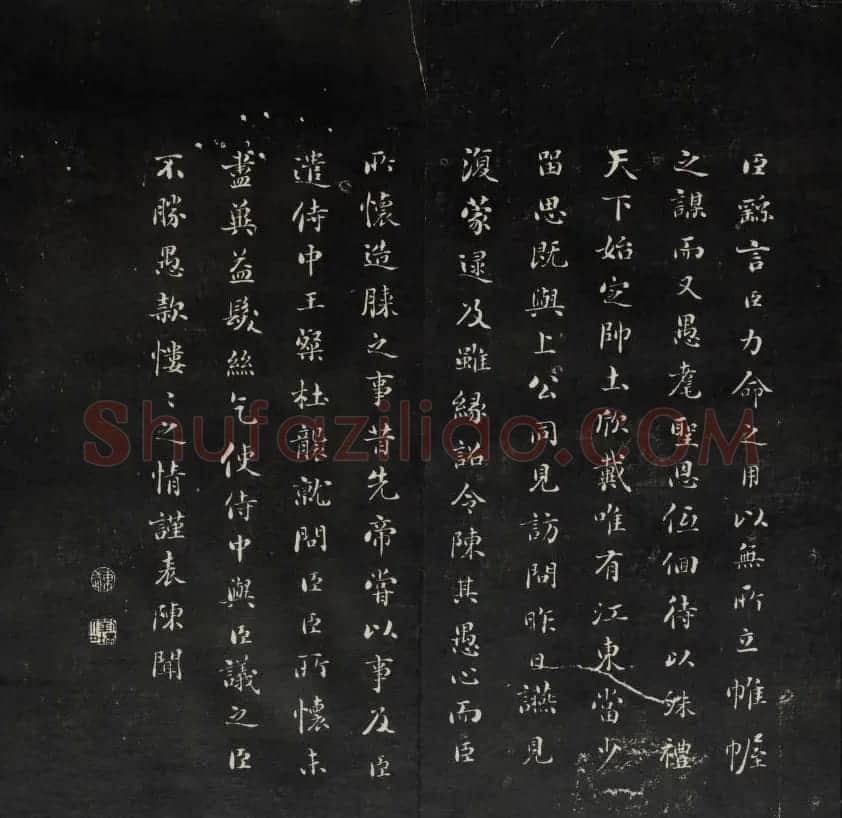 臣繇言臣力命之用以無所立帷幄
之謀而又愚耄聖恩伍佪待以殊禮
天下始定帥土欣戴唯有江東當少
留思既與上公同見訪問昨日讌見
復蒙逮及雖緣詔令陳其愚心而臣
所懷造膝之事昔先帝嘗以事及臣
遣侍中王粲杜襲就問臣臣所懷未
盡冀益髮絲乞使侍中與臣議之臣
不勝愚款慺〻之情謹表陳聞
Shufaziliao.COM